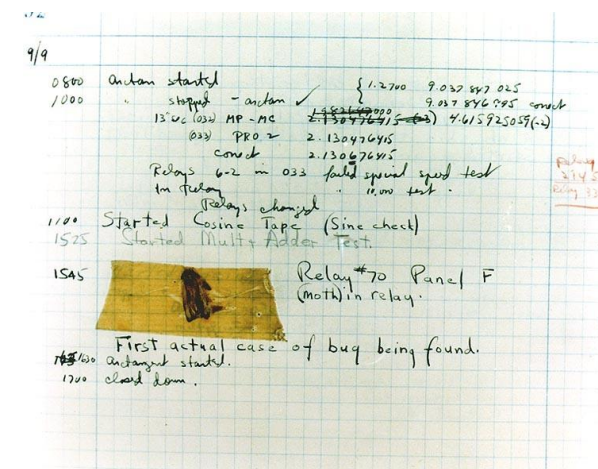 9/9
0800 Antan started
1000 " stopped - antan ✓ { 1.2700 9.037 847 025
9.037 846 995 correct
13" uc (032) MP - MC 2.130476415 (-3) 4.615925059(-2)
(033) PRO 2 2.130476415
correct 2.130676415
Relays 6-2 in 033 failed special speed test
in relay " 10.000 test .
Relays changed
1100 Started Cosine Tape (Sine check)
1525 Started Mult + Adder Test.
1545 Relay #70 Panel F
(moth) in relay.
First actual case of bug being found.
1630 antangent started.
1700 closed down .